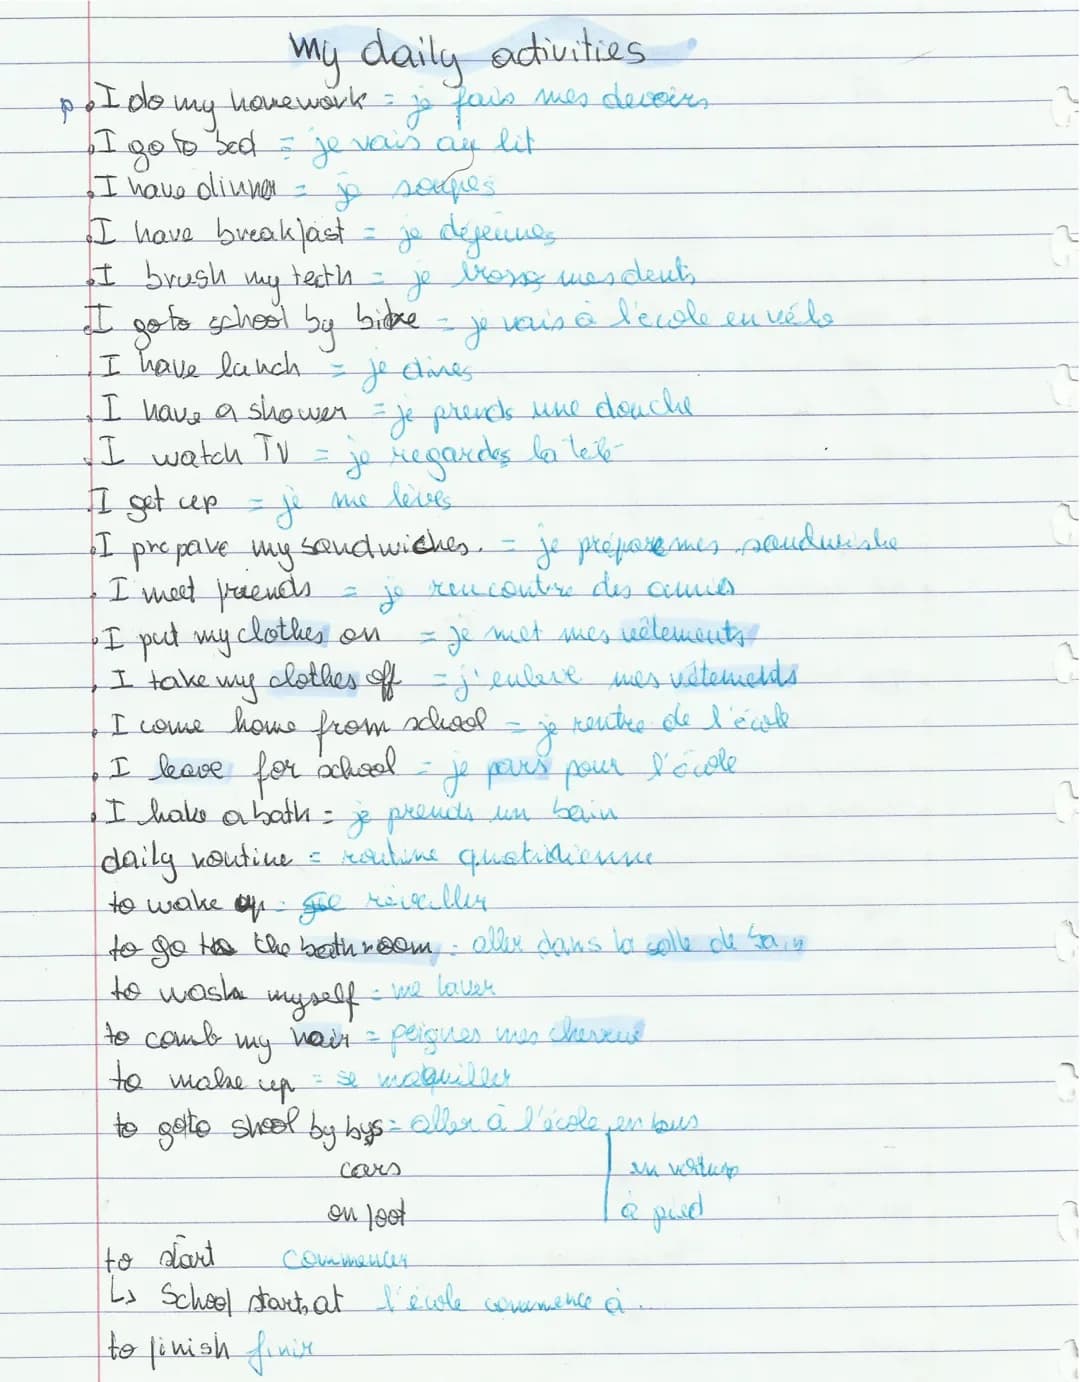 My daily activities
I do my homework = je fais mes devoirs
I go to bed = je vais au lit
I have dinner = je soupes
I have breakfast = je déjeunes
I brush my teeth = je brosse mes dents
I go to school by bike = je vais à l'école en vélo
I have lunch = je dînes
I have a shower = je prends une douche
I watch TV = je regardes la télé
I get up = je me lèves
I prepare my sandwiches. = je prépare mes sandwishe
I meet friends = je rencontre des amies
I put my clothes on = je met mes vêtements
I take my clothes off = j'enlève mes vêtements
I come home from school = je rentre de l'école
I leave for school = je pars pour l'école
I hake a bath = je prends un bain
daily routine = routine quotidienne
to wake up = se réveiller
to go to the bathroom = aller dans la salle de bain
to wash myself = me laver
to comb my hair = peignes mes cheveux
to make up = se maquiller
to goto shool by bys = aller à l'école en bus
cars en voiture
on foot à pied
to start commencer
↳ School starts at l'école commence à ..
to finish finir